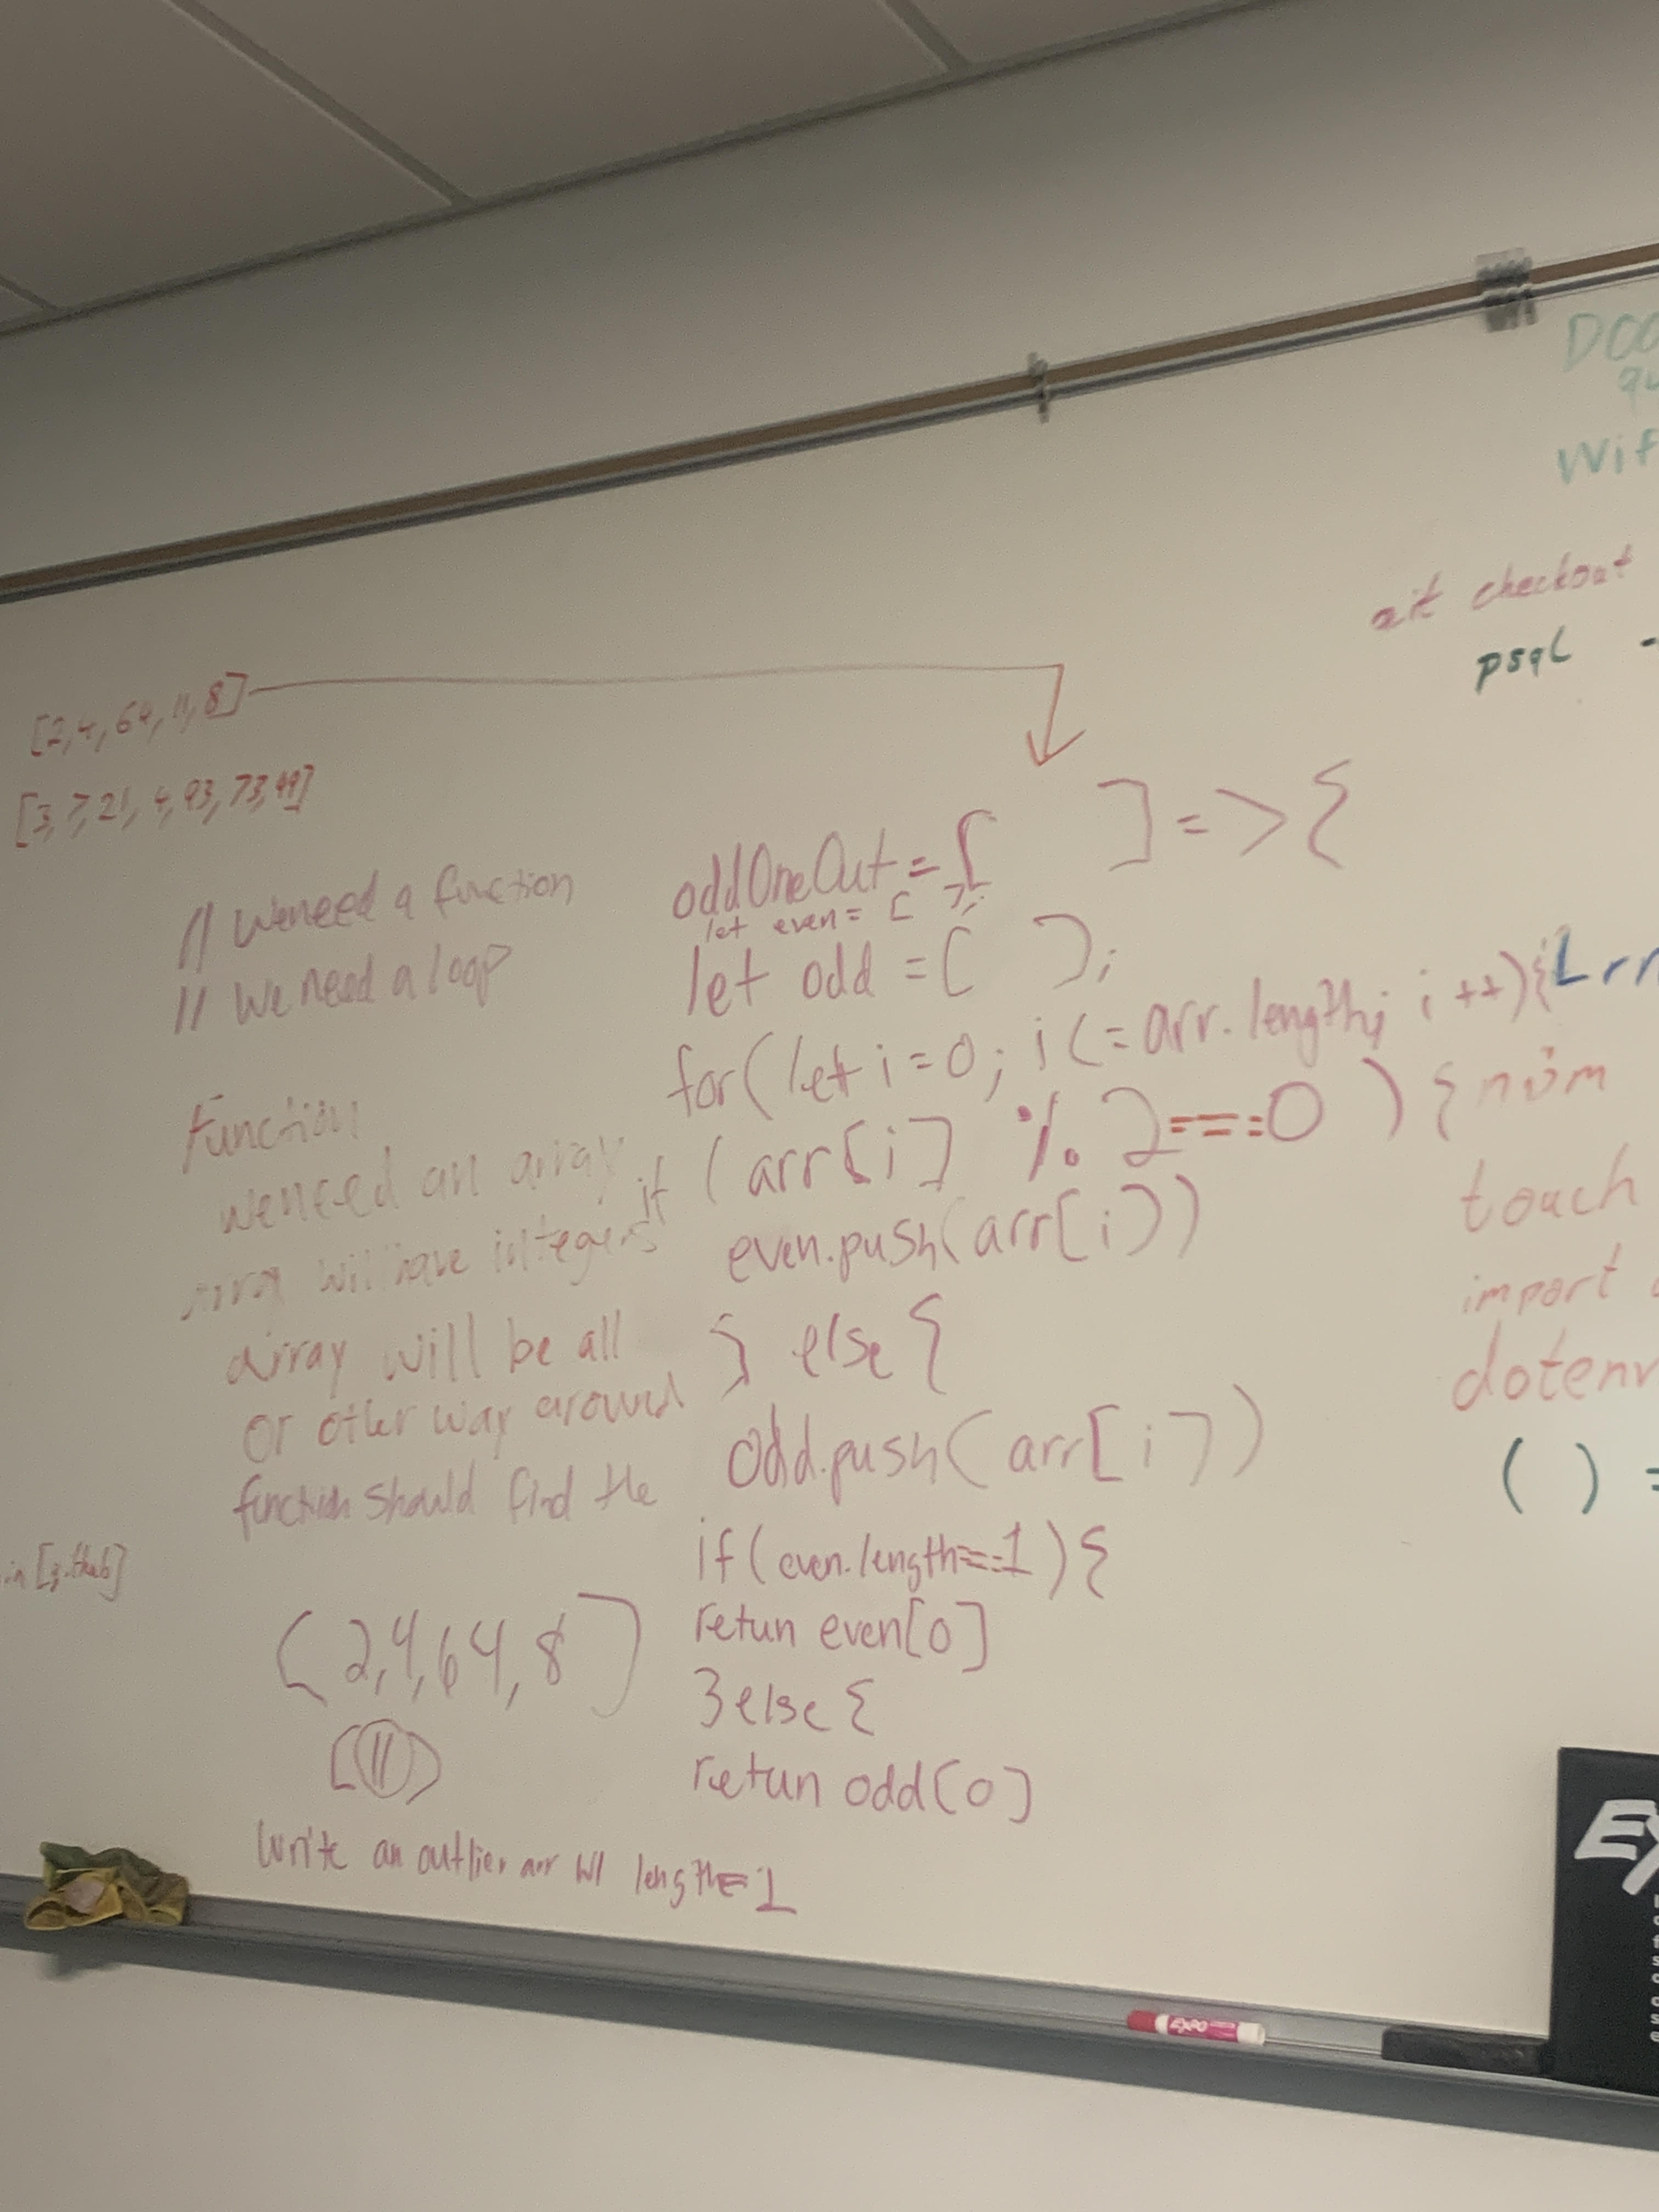 [2,4,64,11,8]
[3,7,21,4,93,73,49]
// We need a function
// We need a loop
Function
we need an array
array will have integers
array will be all
or other way around
function should find the
in
[2,4,64,8]
[11]
Write an outlier arr w/ length=1
oddOneOut=[ ]=>{
let even= [ ];
let odd =[ ];
for(let i=0; i<=arr.length; i++){
if (arr[i] % 2===0 ){
even.push(arr[i])
} else {
odd.push(arr[i])
if(even.length===1){
retun even[0]
}else {
retun odd[0]
git checkout
psql -
touch
import
( ) =
EXPO